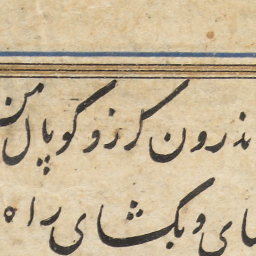 ندرون کرز و کوپال من
ای و بکشای راه